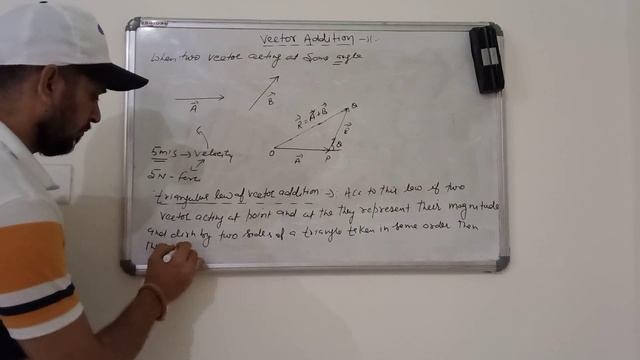 Vector Addition :-
When two vector acting at some angle
A
B
R = A + B
Q
B
θ
O
A
P
5m/s → velocity
5N - Force
Triangular law of vector addition :- Acc to this law if two
vector acting at point and at the they represent their magnitude
and dirn by two sides of a triangle taken in same order then